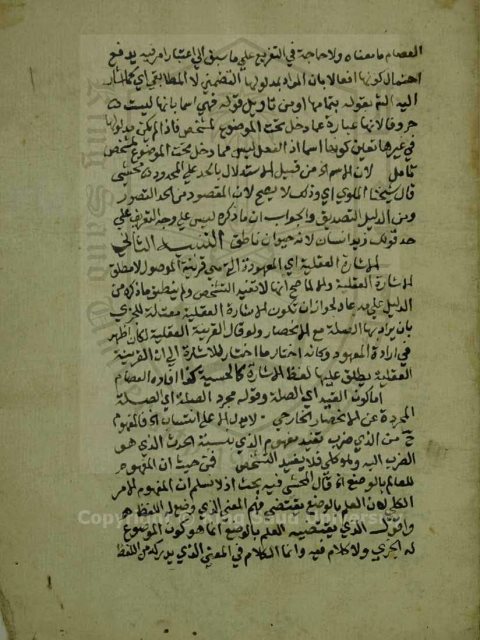 العصام ما معناه ولا حاجة في التفريع على ما سبق الى اعتبار امر فيه يدفع
احتمال كونها افعالا بان المراد بمدلولها التضمني لا المطابقي اي كما اشار
اليه الشم بقوله بتمامها او من تاويل قوله فهي اسما بانها ليست
حروفا لانها عبارة عما دخل تحت الموضوع لمشخص فاذا لم يكن مدلولها
في غيرها تعين كونها اسما اذ الفعل ليس مما دخل تحت الموضوع لمشخص
تامل لان الاسم من قبيل الاستدلال بالحد على المحدود محشي
قال شيخنا الملوي اي وذلك لا يصح لان المقصود من الحد التصور
ومن الدليل التصديق والجواب ان ما ذكره ليس على وجه التعريف على
حد قولك زيد انسان لانه حيوان ناطق التنبيه الثاني
الاشارة العقلية اي المعهودة التي هي قرينة الموصول لا مطلق
الاشارة العقلية والا لما صح انها لا تفيد التشخص ولم ينطبق ما ذكره من
الدليل على مدعاه لجواز ان تكون الاشارة العقلية معتلة للجزي
بان يراد بها الصلة مع الانحصار ولو قال القرينة العقلية لكان اظهر
في ارادة المعهود وكانه اختار ما اختار للاشارة الى ان القرينة
العقلية يطلق عليها لفظ الاشارة كالحسية كذا افاده العصام
اما كون القيد اي الصلة وقوله مجرد الصلة اي الصلة
المجردة عن الانحصار الخارجي لا يدل الا على انتساب الخ فالمفهوم
ح من الذي ضرب تقيد مفهوم الذي بنسبة الحدث الذي هو
الضرب اليه وهو كلي فلا يفيد التشخص فمن حيث ان المفهوم
للعالم بالوضع الخ قال المحشي فيه بحث اذ لا نسلم ان المفهوم الامر
الكلي لان العلم بالوضع يقتضي فهم المعني الذي وضع له اللفظ هـ
واقول الذي يقتضيه العلم بالوضع انما هو كون الموضوع
له الجزي ولا كلام فيه وانما الكلام في المعني الذي يدركه من اللفظ